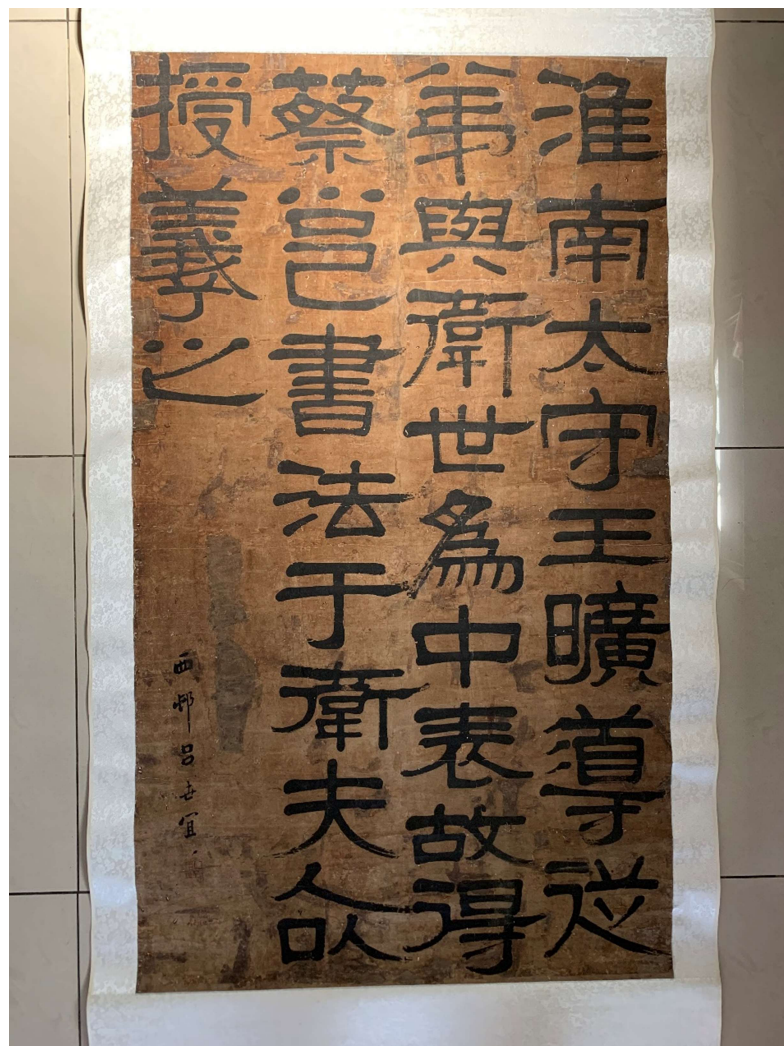 淮南太守王曠導從
弟與衛世為中表故得
蔡邕書法于衛夫人以
授羲之
西邨呂世宜